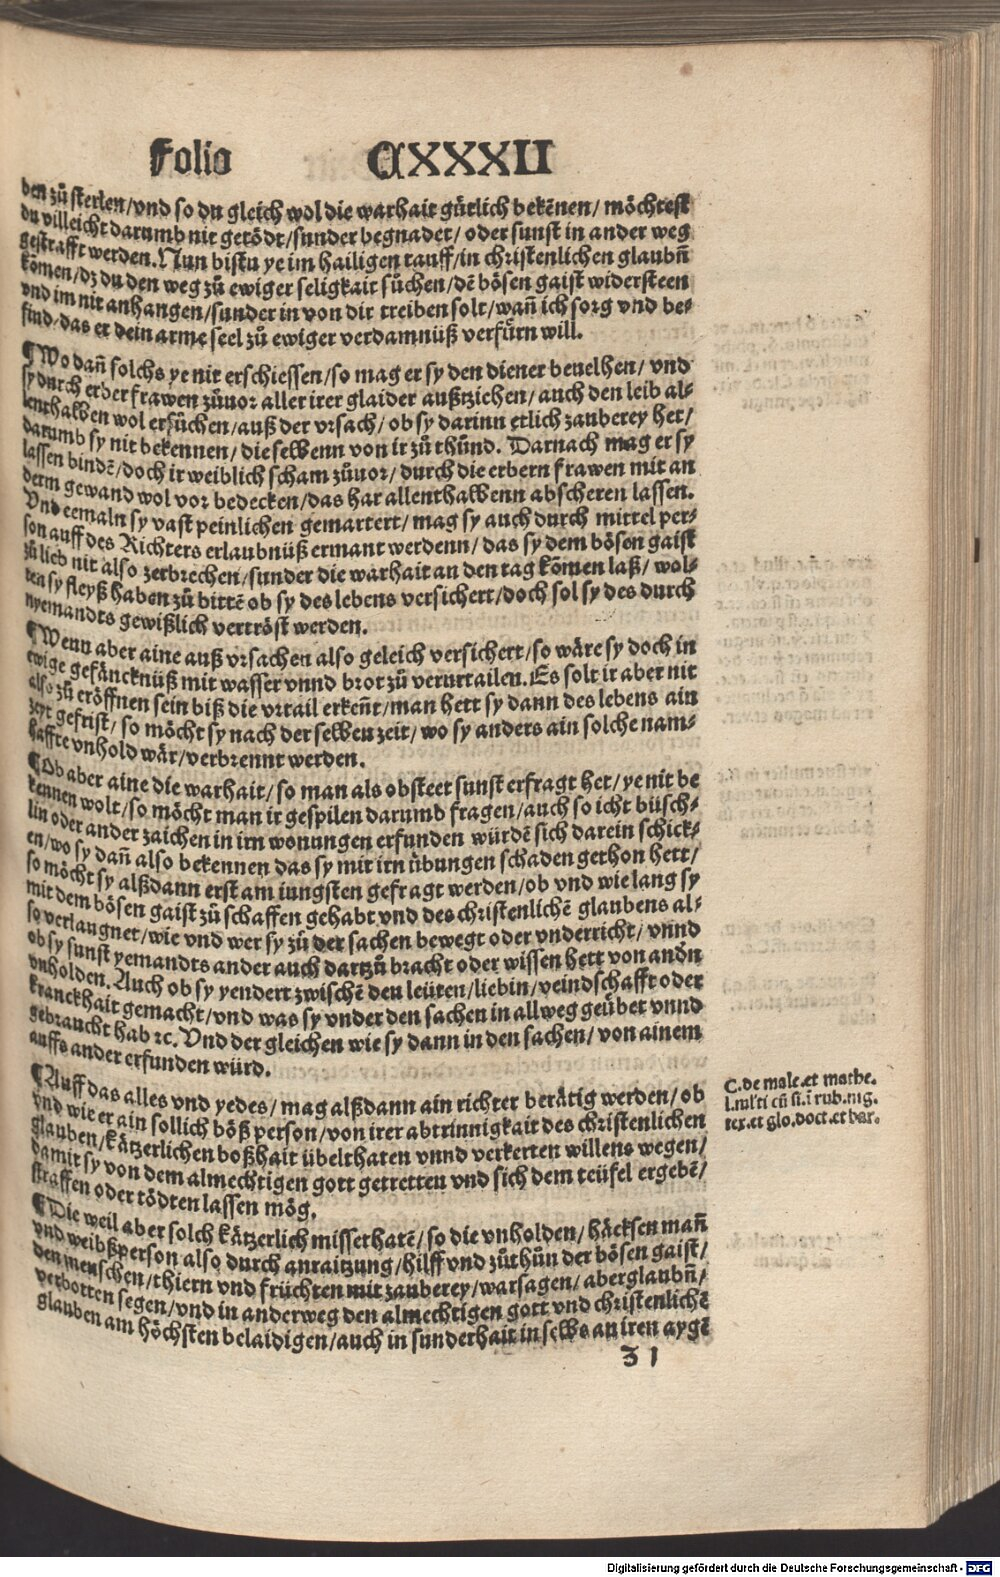 Folio CXXXII
ben zů sterben/vnd so du gleich wol die warhait gütlich bekēnen/ möchtest
du villeicht darumb nit getödt/sunder begnadet/ oder sunst in ander weg
gestrafft werden. Nun bistu ye im hailigen tauff/in christenlichen glaubñ
kōmen/dz du den weg zů ewiger seligkait sůchen/dē bösen gaist widersteen
vnd im nit anhangen/sunder in von dir treiben solt/wañ ich sorg vnd be-
find/das er dein arme seel zů ewiger verdamnüß verfürn will.
¶Wo dañ solchs ye nit erschiessen/so mag er sy den diener beuelhen/ vnd
sy durch erber frawen zůuor aller irer glaider außtziehen/ auch den leib al-
lenthalben wol ersůchen/auß der vrsach/ ob sy darinn etlich zauberey het/
darumb sy nit bekennen/ die selbenn von ir zů thůnd. Darnach mag er sy
lassen bindē/doch ir weiblich scham zůuor/ durch die erbern frawen mit an
derm gewand wol vor bedecken/das har allenthalbenn abscheren lassen.
Vnd eemaln sy vast peinlichen gemartert/ mag sy auch durch mittel per-
son auff des Richters erlaubnüß ermant werdenn/ das sy dem bösen gaist
zů lieb nit also zerbrechen/sunder die warhait an den tag kōmen laß/ wol-
ten sy fleyß haben zů bittē ob sy des lebens versichert/doch sol sy des durch
nyemandts gewißlich vertröst werden.
¶Wenn aber aine auß vrsachen also geleich versichert/so wäre sy doch in
ewige gefäncknüß mit wasser vnnd brot zů verurtailen. Es solt ir aber nit
also zů eröffnen sein biß die vrtail erkeñt/man hett sy dann des lebens ain
zeyt gefrist/ so möcht sy nach der selben zeit/ wo sy anders ain solche nam-
haffte vnhold wär/verbrennt werden.
¶Ob aber aine die warhait/ so man als obsteet sunst erfragt het/ ye nit be
kennen wolt/so möcht man ir gespilen darumb fragen/auch so icht büsch-
lin oder ander zaichen in irn wonungen erfunden würdē sich darein schick-
en/wo sy dañ also bekennen das sy mit irn übungen schaden gethon hett/
so möcht sy alßdann erst am iungsten gefragt werden/ob vnd wie lang sy
mit dem bösen gaist zů schaffen gehabt vnd des christenlichē glaubens al-
so verlaugnet/wie vnd wer sy zů der sachen bewegt oder vnderricht/ vnnd
ob sy sunst yemandts ander auch dartzů bracht oder wissen hett von andn
vnholden. Auch ob sy yendert zwischē den leüten/liebin/veindschafft oder
kranckhait gemacht/vnd was sy vnder den sachen in allweg geübet vnnd
gebraucht hab ꝛc. Vnd der gleichen wie sy dann in den sachen/ von ainem
auffs ander erfunden würd.
¶Auff das alles vnd yedes/ mag alßdann ain richter berätig werden/ ob
vnd wie er ain sollich böß person/von irer abtrinnigkait des christenlichen
glauben/kätzerlichen boßhait übelthaten vnnd verkerten willens wegen/
damit sy von dem almechtigen gott getretten vnd sich dem teüfel ergebē/
straffen oder tödten lassen mög.
¶Die weil aber solch kätzerlich missethatē/ so die vnholden/ häcksen mañ
vnd weibßperson also durch anraitzung/hilff vnd zůthůn der bösen gaist/
den menschen/thiern vnd früchten mit zauberey/warsagen/ aberglaubñ/
verbotten segen/vnd in anderweg den almechtigen gott vnd christenlichē
glauben am höchsten belaidigen/auch in sunderhait in selbs an iren aygē
C.de male.et mathe.
l.ml'ti cū si.ī rub.nig.
tex.et glo.doct.et bar.
3 1
Digitalisierung gefördert durch die Deutsche Forschungsgemeinschaft - DFG